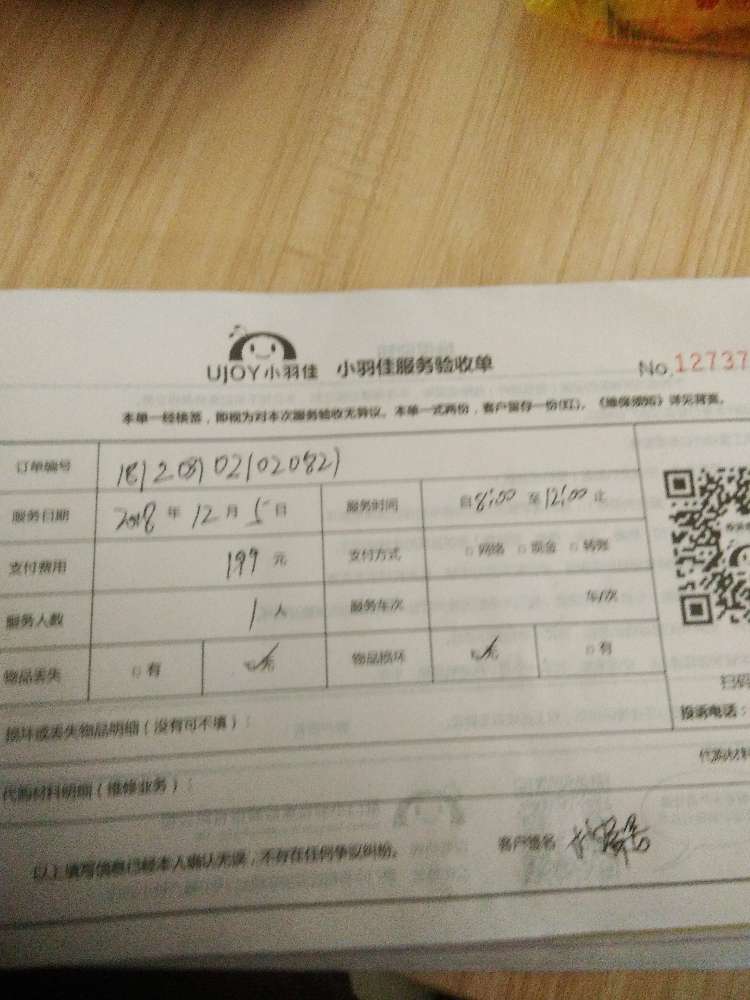 UJOY小羽佳 小羽佳服务验收单 No.12737
本单一经核签，即视为对本次服务验收无异议。本单一式两份，客户留存一份(红)。《维保须知》详见背面。
订单编号
服务日期 2018 年 12 月 5 日 服务时间 自8:00 至12:00 止
支付费用 199 元 支付方式 网络 现金 转账
服务人数 1 人 服务车次 车/次
物品丢失 有 无 物品损坏 无 有
扫码
损坏或丢失物品明细（没有可不填）： 投诉电话：
代购材料明细（维修业务）： 代购材料
以上填写信息已经本人确认无误，不存在任何争议纠纷。 客户签名